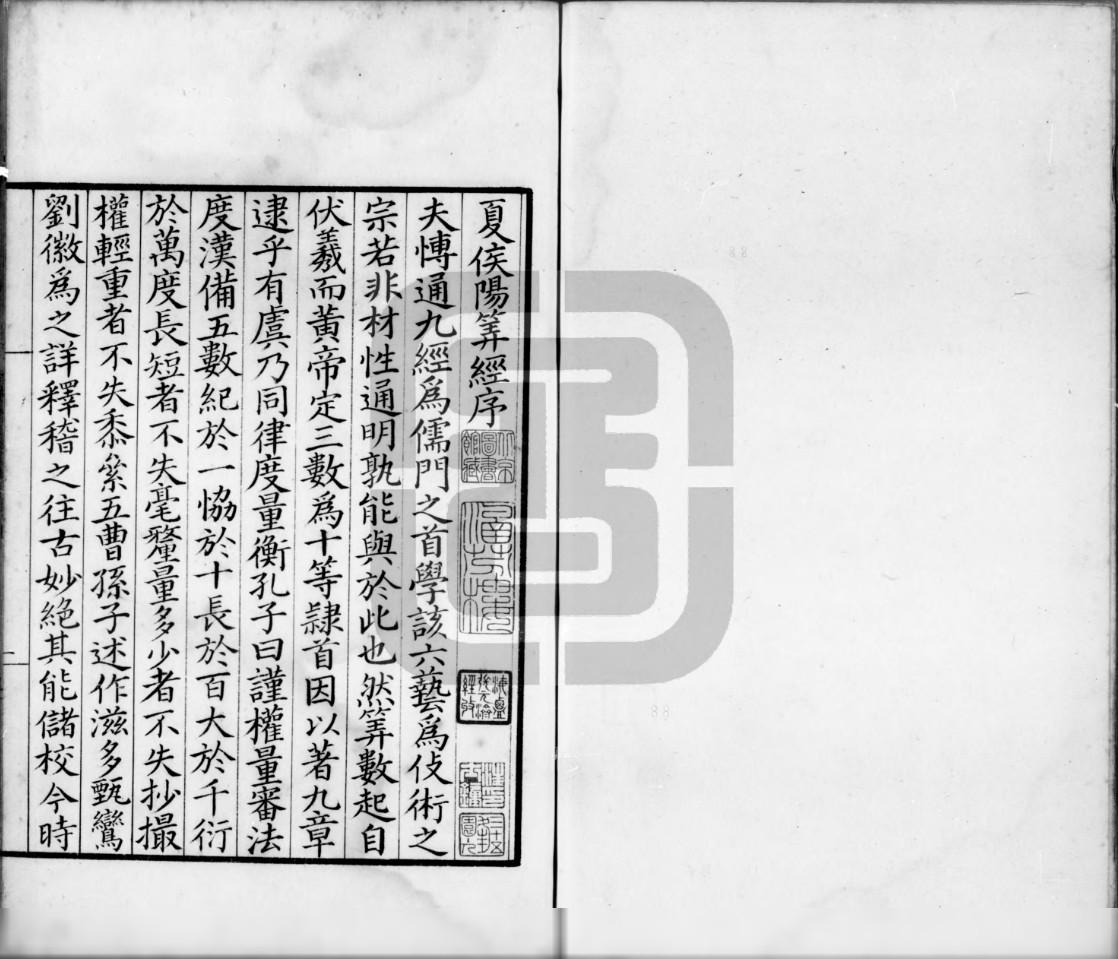 夏侯陽筭經序
夫博通九經爲儒門之首學該六藝爲伎術之
宗若非材性通明孰能與於此也然筭數起自
伏羲而黃帝定三數爲十等隷首因以著九章
逮乎有虞乃同律度量衡孔子曰謹權量審法
度漢備五數紀於一恊於十長於百大於千衍
於萬度長短者不失毫氂量多少者不失抄撮
權輕重者不失黍絫五曹孫子述作滋多甄鸞
劉徽爲之詳釋稽之往古妙絶其能儲校今時
北京圖書館藏
海鹽張元濟經收
88
88